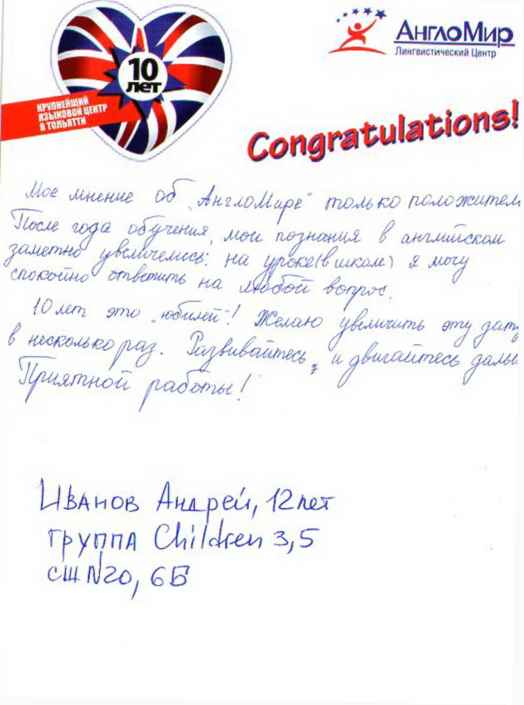 АнглоМир
Лингвистический Центр
10
лет
КРУПНЕЙШИЙ
ЯЗЫКОВОЙ ЦЕНТР
В ТОЛЬЯТТИ
Congratulations!
Мое мнение об „АнглоМире" только положител
После года обучения, мои познания в английском
заметно увеличелись: на уроке (в школе) я могу
спокойно ответить на любой вопрос.
10 лет это „юбилей"! Желаю увеличить эту дату
в несколько раз. Развивайтесь, и двигайтесь даль
Приятной работы!
Иванов Андрей, 12 лет
группа Children 3,5
СШ N20, 6Б